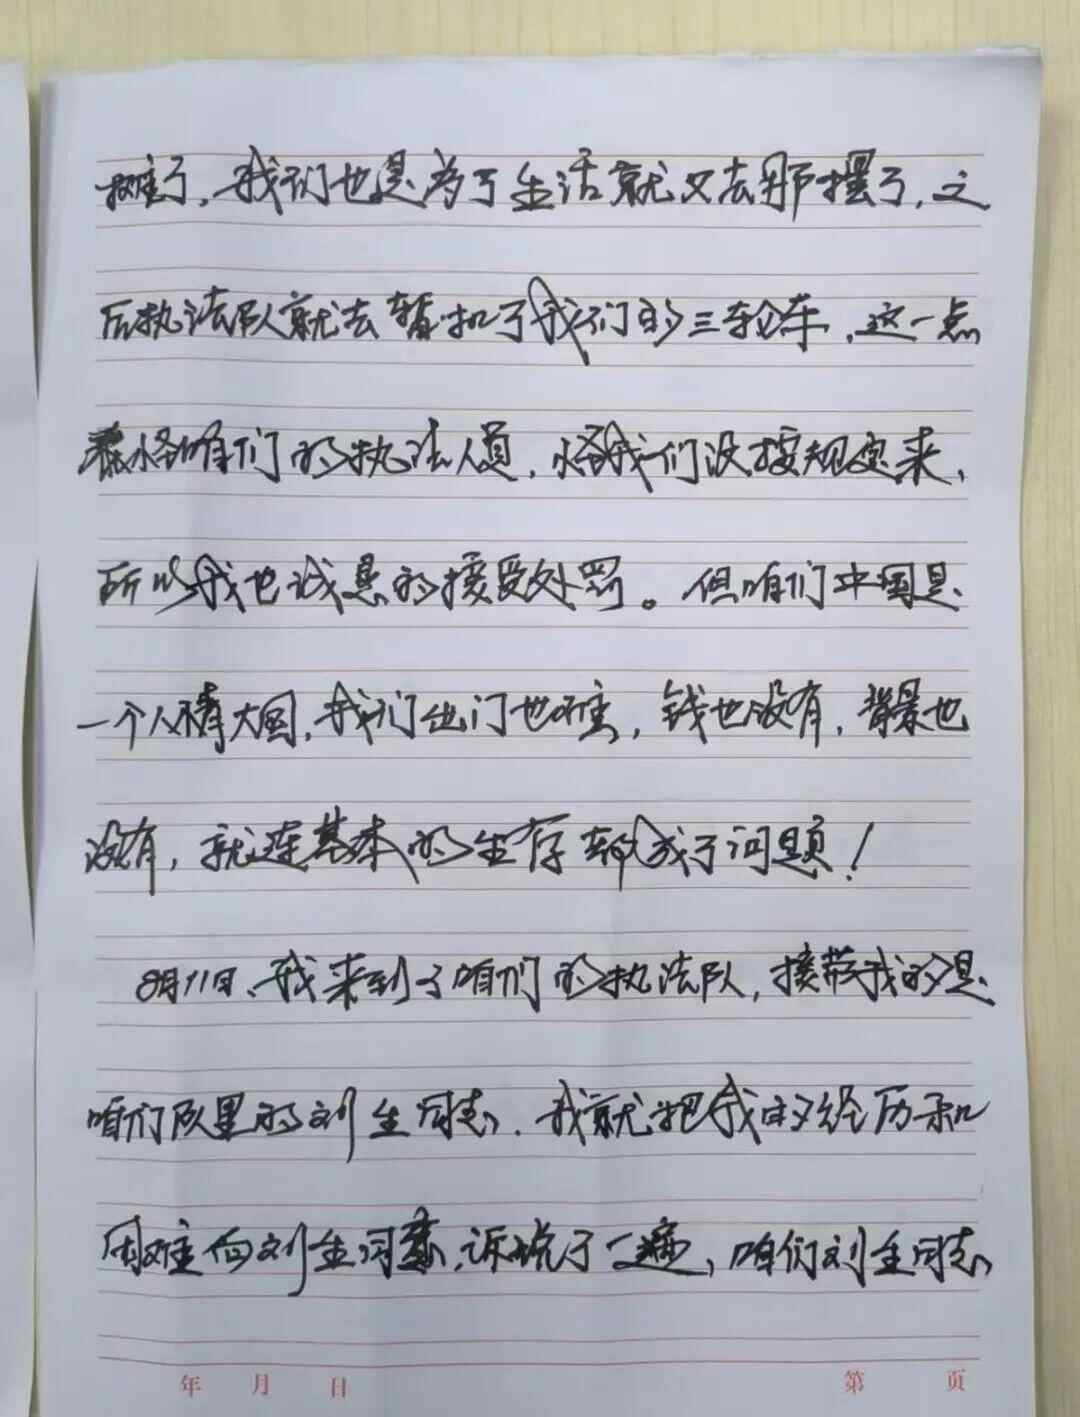 摊了，我们也是为了生活就又去那摆了，之
后执法队就去暂扣了我们的三轮车，这一点
怪咱们的执法人员，怪我们没按规定来、
所以我也诚恳的接受处罚。但咱们中国是
一个人情大国，我们出门也难，钱也没有，背景也
没有，就连基本的生存都成了问题！
8月11日、我来到了咱们的执法队，接带我的是
咱们队里的刘生同志．我就把我的经历和
困难向刘生同志，诉说了一遍，咱们刘生同志
年 月 日 第 页